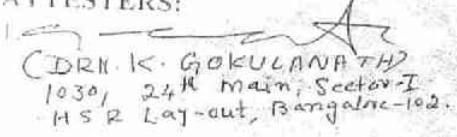 ATTESTERS:
1.
(DRN. K. GOKULANATH)
1030, 24th Main, Sector-I
HSR Lay-out, Bangalore-102.